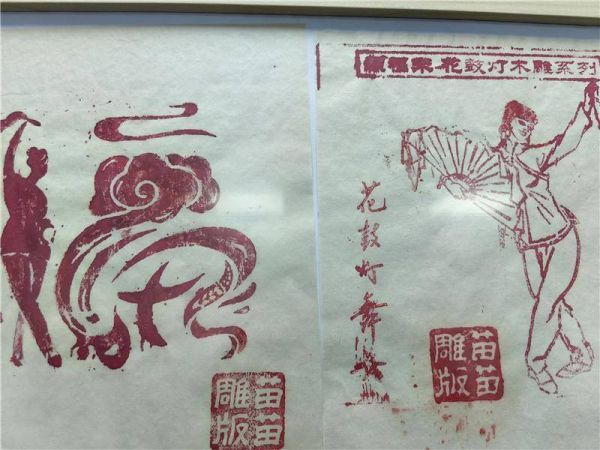 福
苗苗
雕版
花鼓灯木雕系列
花鼓灯舞
苗苗
雕版